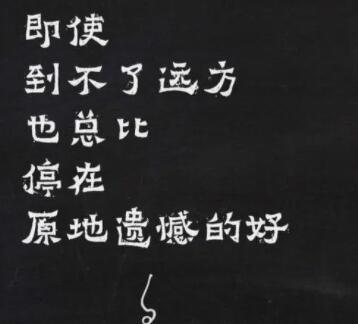 即使
到不了远方
也总比
停在
原地遗憾的好